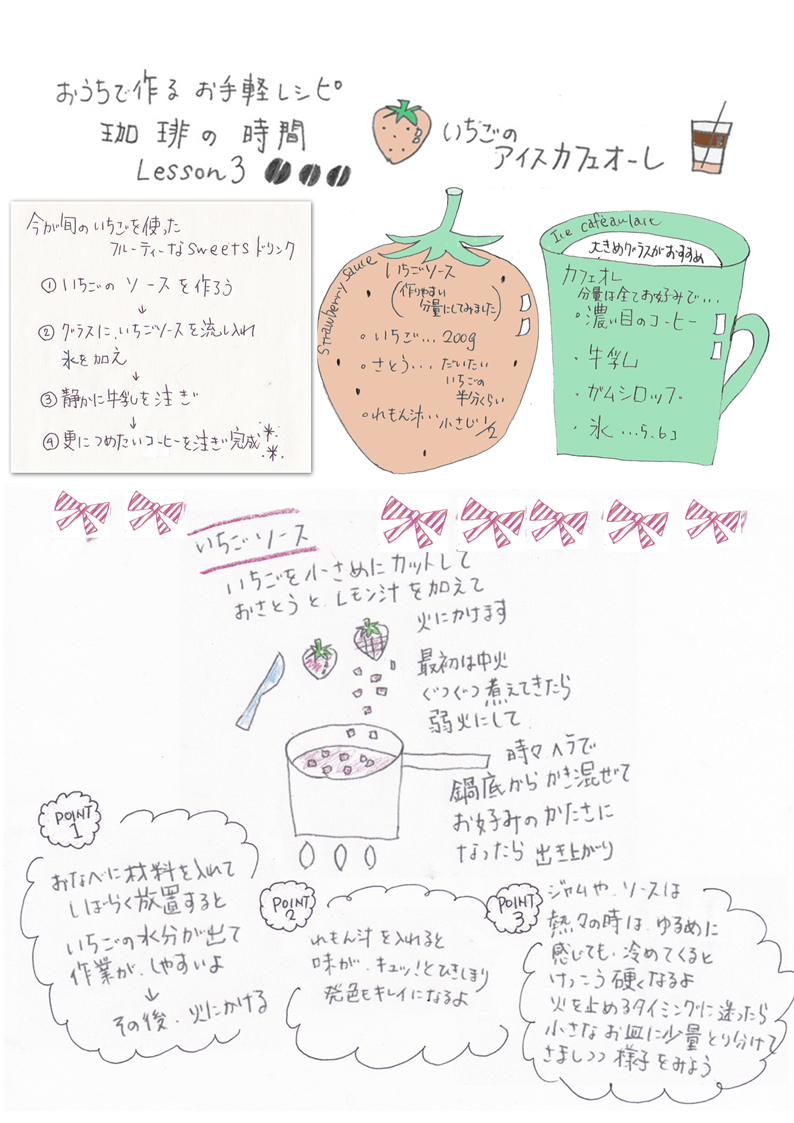 おうちで作る お手軽レシピ
珈琲の時間
Lesson 3
いちごの
アイスカフェオーレ
今が旬のいちごを使った
フルーティーなsweetsドリンク
① いちごの ソースを作ろう
↓
② グラスに、いちごソースを流し入れ
氷を加え
↓
③ 静かに牛乳を注ぎ
↓
④ 更につめたいコーヒーを注ぎ完成
Strawberry sauce
いちごソース
(作りやすい
分量にしてみました)
・いちご...200g
・さとう...だいたい
いちごの
半分くらい
・れもん汁..小さじ1/2
Ice caféaulait
大きめグラスがおすすめ
カフェオレ
分量は全てお好みで...
・濃い目のコーヒー
・牛乳
・ガムシロップ.
・氷...5.6コ
いちごソース
いちごを小さめにカットして
おさとうと、レモン汁を加えて
火にかけます
最初は中火
ぐつぐつ煮えてきたら
弱火にして
時々ヘラで
鍋底からかき混ぜて
お好みのかたさに
なったら出き上がり
POINT
1
おなべに材料を入れて
しばらく放置すると
いちごの水分が出て
作業が、しやすいよ
↓
その後、火にかける
POINT
2
れもん汁を入れると
味が、キュッ!とひきしまり
発色もキレイになるよ
POINT
3
ジャムや、ソースは
熱々の時は、ゆるめに
感じても、冷めてくると
けっこう硬くなるよ
火を止めるタイミングに迷ったら
小さなお皿に少量とり分けて
さましつつ様子をみよう